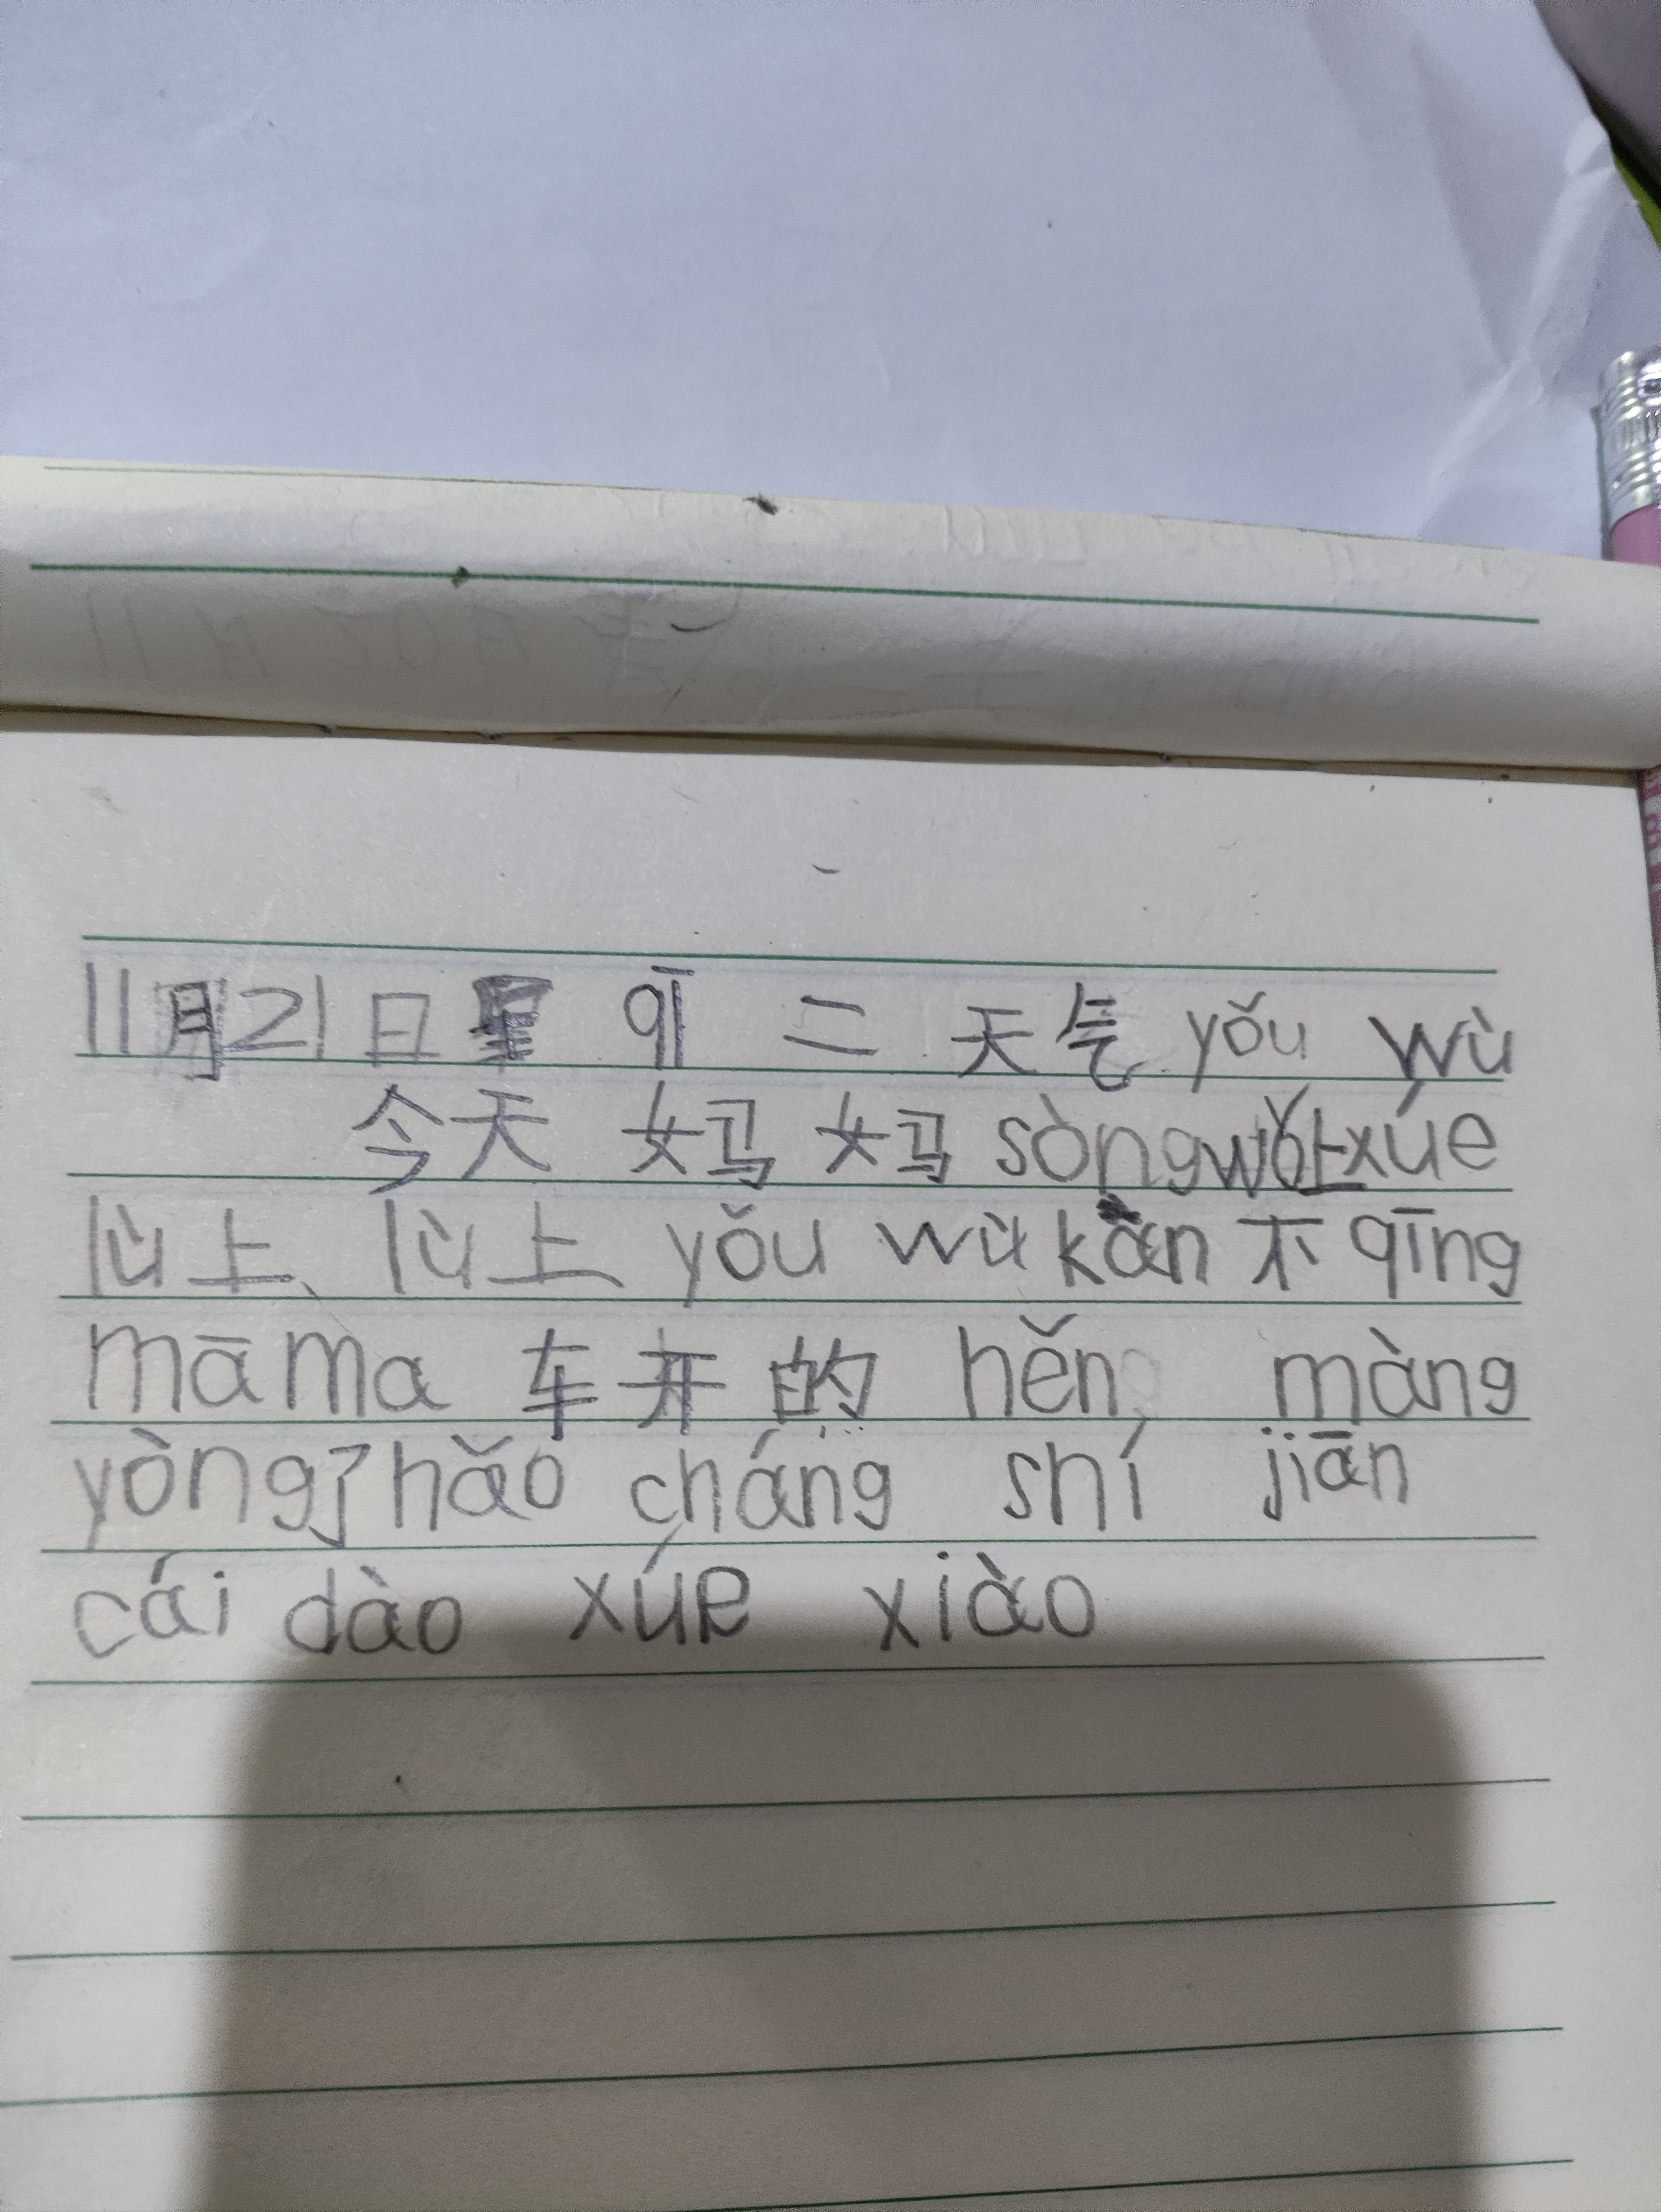 11月21日星 qī 二 天气 yǒu wù
今天 妈妈 sòng wǒ 上 xúe
lù上、lù上 yǒu wù kàn 不 qīng
māma 车开的 hěn màng
yòng了hǎo cháng shí jiān
cái dào xúe xiào